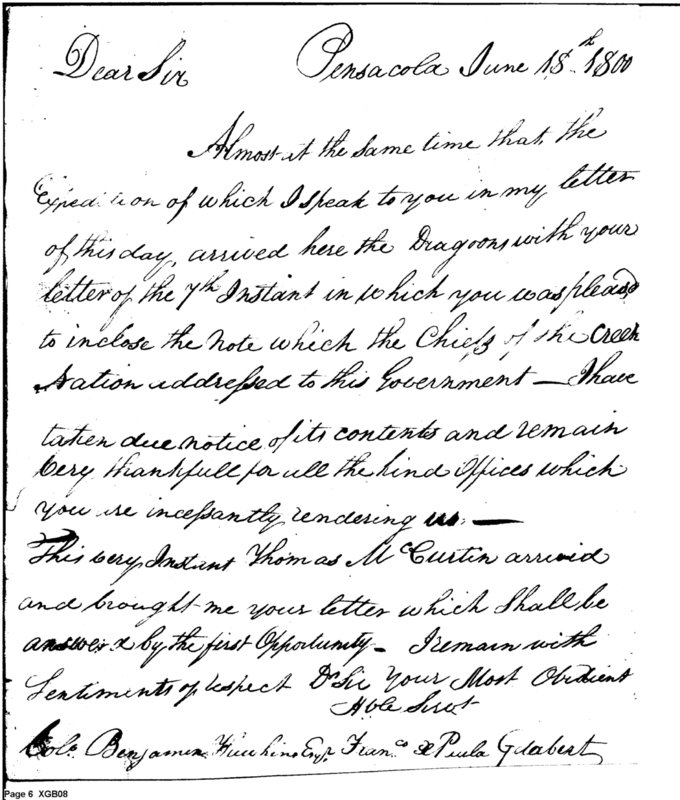 Dear Sir Pensacola June 18th 1800
Almost at the same time that the
Expedition of which I speak to you in my letter
of this day, arrived here the Dragoons with your
letter of the 7th Instant in which you was pleasd
to inclose the note which the Chiefs of the Creek
Nation addressed to this Government — I have
taken due notice of its contents and remain
very thankfull for all the kind Offices which
you are incessantly rendering us. —
This very Instant Thomas McCurtin arrived
and brought me your letter which Shall be
answerd by the first Opportunity — I remain with
Sentiments of respect Dr Sir Your Most Obedient
Hble Servt
Colo Benjamin Hawkins Esqr Franco de Paula Gelabert
Page 6 XGB08